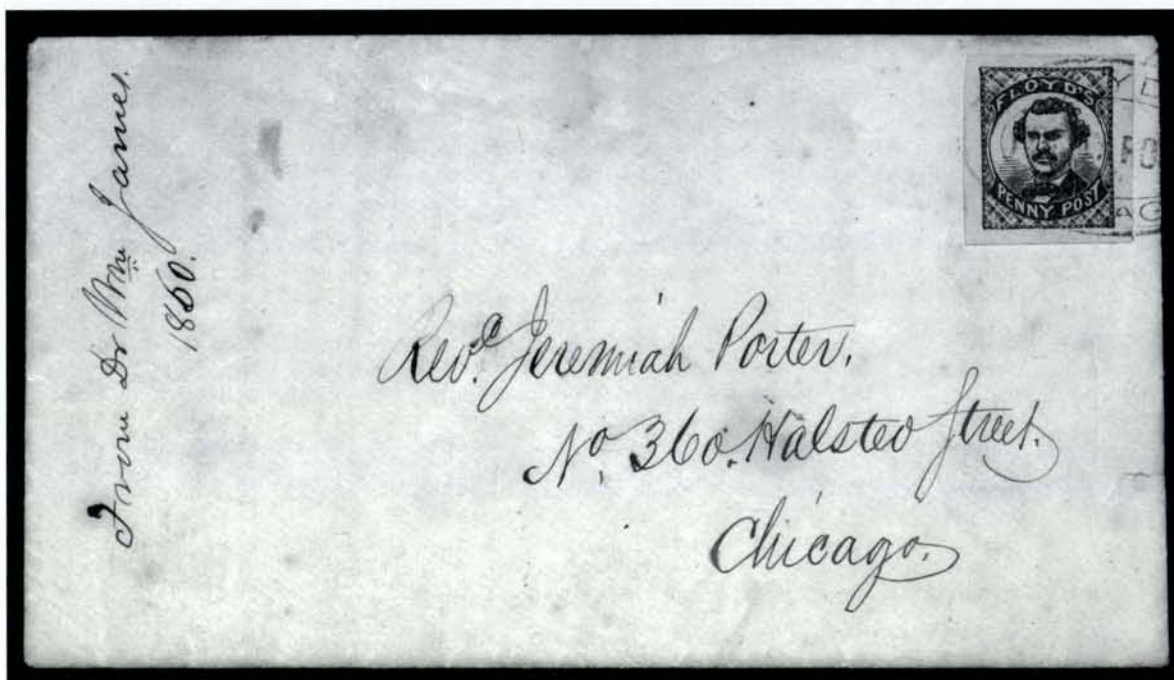 From Dr Wm James.
1860.
FLOYD'S
PENNY POST
Revd. Jeremiah Porter,
No. 360. Halsted Street.
Chicago.